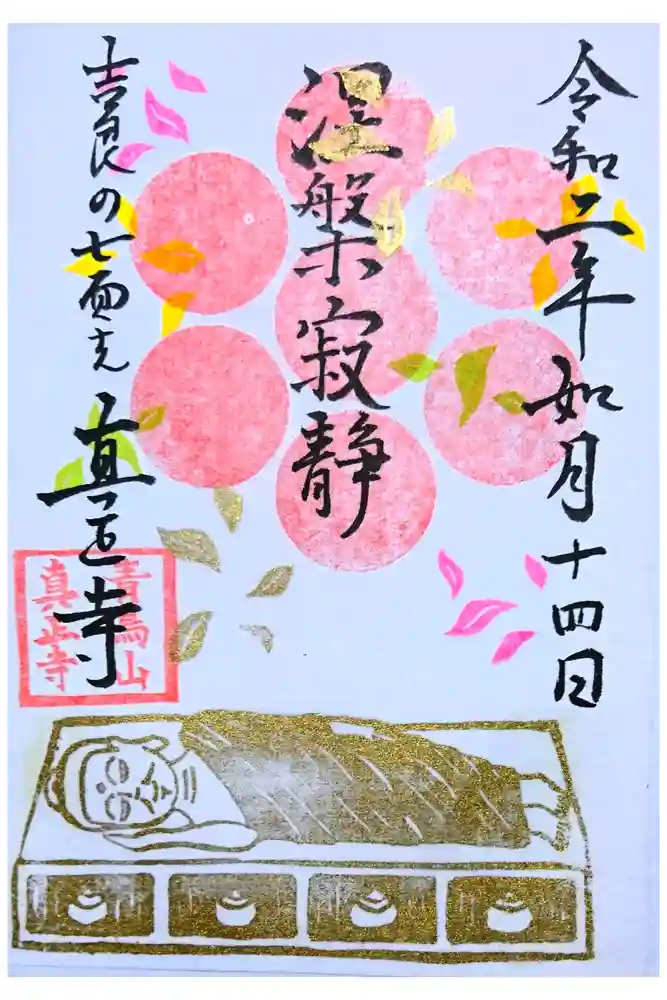 令和二年如月十四日
涅槃寂静
吉良の七面さん
真正寺
青鳥山
真正寺